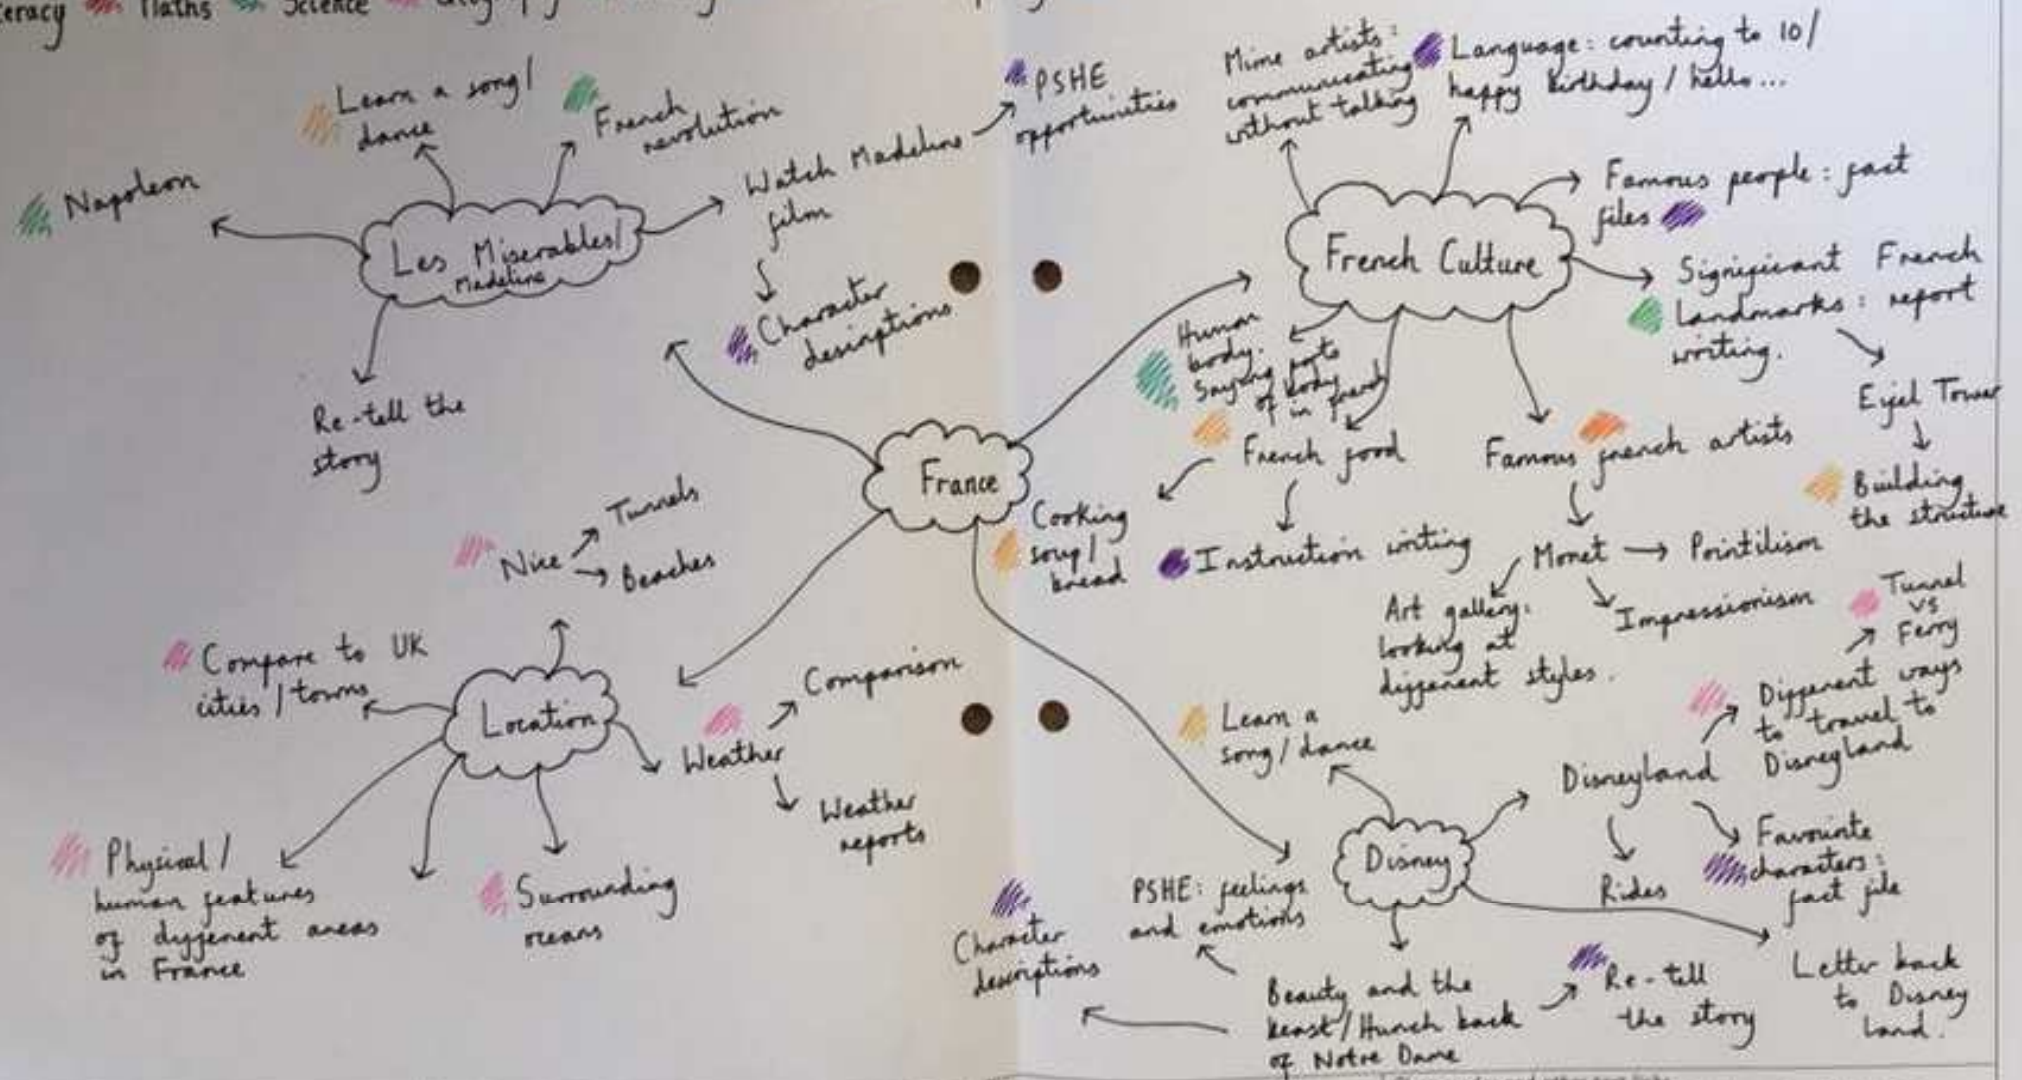 Maths
Science
Learn a song/
dance
French
revolution
Napoleon
Les Miserables/
Madeline
Watch Madeline
film
PSHE
opportunities
Character
descriptions
Re-tell the
story
Mime artists:
communicating
without talking
Language: counting to 10/
happy Birthday / hello...
French Culture
Famous people: fact
files
Significant French
Landmarks: report
writing.
Eifel Tower
Building
the structure
Human
body.
Saying parts
of body
in french
French food
Cooking
soup/
bread
Instruction writing
Famous french artists
Monet
Pointilism
Impressionism
Art gallery:
looking at
different styles.
France
Nice
Tunnels
Beaches
Compare to UK
cities / towns
Location
Weather
Comparison
Weather
reports
Physical /
human features
of different areas
in France
Surrounding
oceans
Learn a
song/dance
Disney
Disneyland
Different ways
to travel to
Disneyland
Tunnel
vs
Ferry
Rides
Favourite
characters:
fact file
Letter back
to Disney
land.
Beauty and the
beast/Hunch back
of Notre Dame
PSHE: feelings
and emotions
Character
descriptions
Re-tell
the story